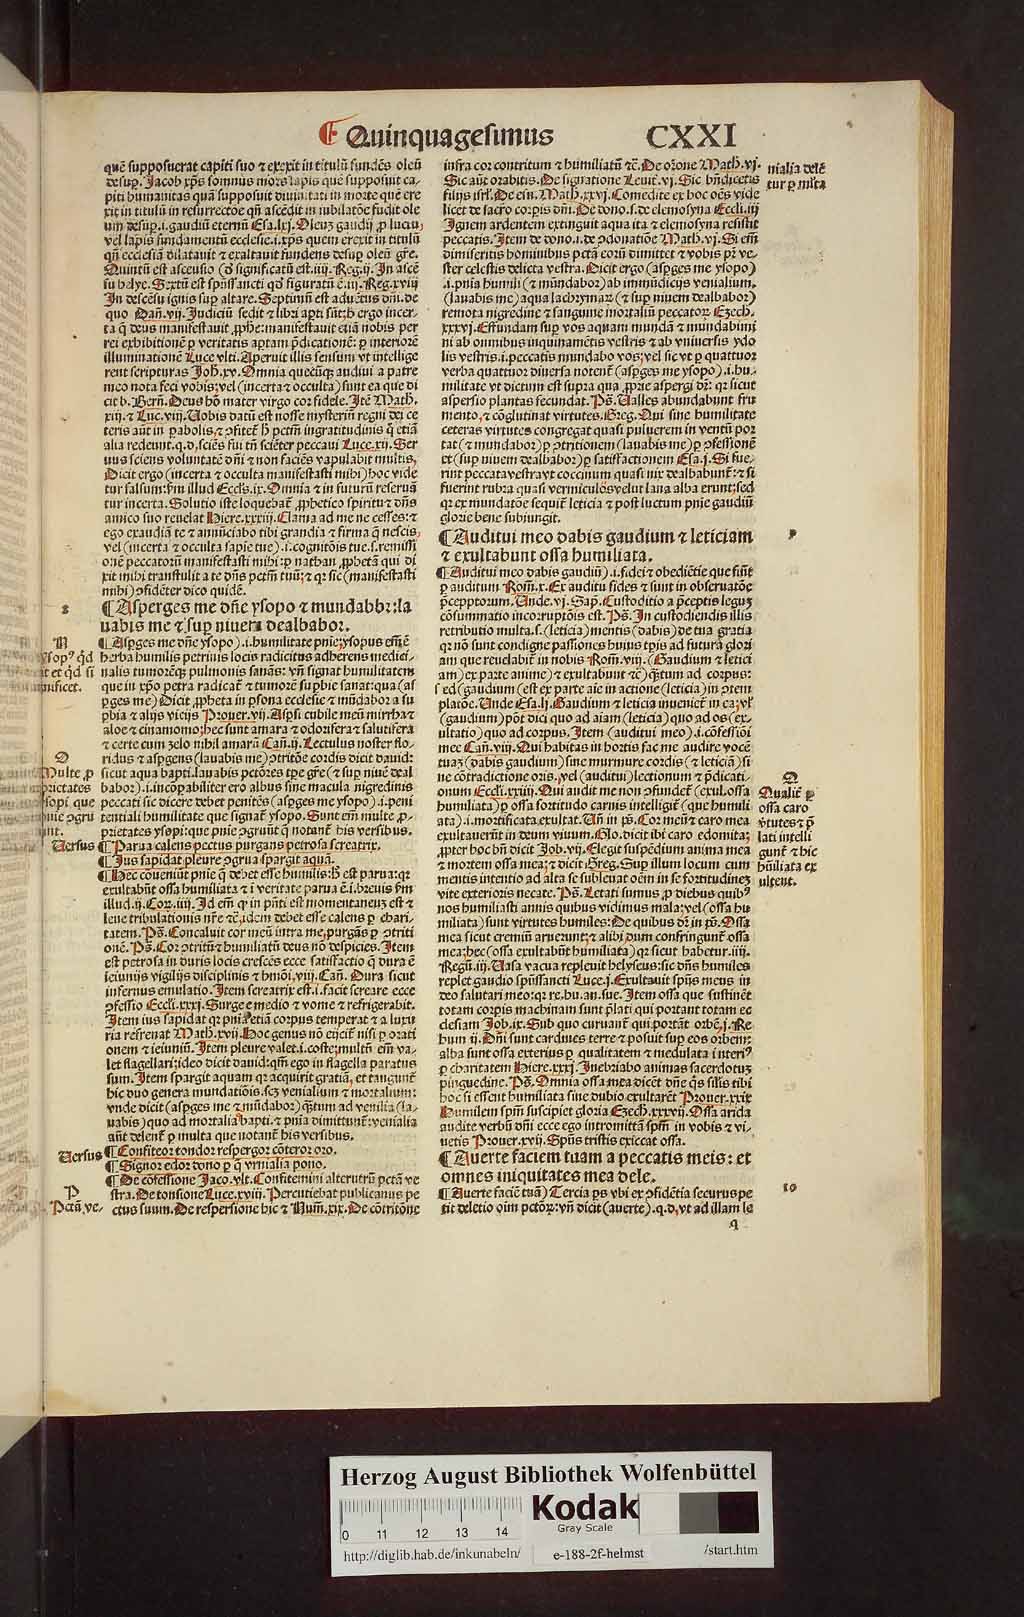 Quinquagesimus CXXI
quē supposuerat capiti suo ⁊ erexit in titulū fundēs oleū
desup. Jacob xp̄s somnus mors lapis quē supposuit ca-
piti humanitas quā supposuit diuinitati in morte quē ere
xit in titulū in resurrectōe qn̄ ascēdit in iubilatōe fudit ole
um desup .i. gaudiū eternū Esa.lxi. Oleum gaudij ꝓ luctu,
vel lapis fundamentū ecclesie .i. xp̄s quem erexit in titulū
qn̄ ecclesiā dilatauit ⁊ exaltauit fundens desup oleū gr̄e.
Quintū est ascensio
In descēsu ignis sup altare. Septimū est aduētus dn̄i. de
quo Dan̄.vii. Judiciū sedit ⁊ libri apti sūt:
illuminationē Luce vlti. Aperuit illis sensum vt intellige
rent scripturas Joh̄.xv. Omnia quecūqꝫ audiui a patre
meo nota feci vobis; vel (incerta ⁊ occulta) sunt ea que di
cit b. Bern̄. Deus hō mater virgo cor fidele. Itē Math̄.
xiij. ⁊ Luc.viij. Uobis datū est nosse mysteriū regni dei ce
uus sciens voluntatē dn̄i ⁊ non faciēs vapulabit multis,
Dicit ergo (incerta ⁊ occulta manifestasti mihi) hoc vide
tur falsum: fm illud Eccl̄s.ix. Omnia ⁊ in futurū reseruā
tur incerta. Solutio iste loquebat ꝓphetico spiritu ⁊ dn̄s
amico suo reuelat Hiere.xxxiij. Clama ad me ne cesses: ⁊
ego exaudiā te ⁊ annūciabo tibi grandia ⁊ firma q̄ nescis,
vel (incerta ⁊ occulta sapie tue) .i. cognitōis tue .s. remissi
onē peccatorū manifestasti mihi: ꝑ nathan ꝓphetā qui di
xit mihi transtulit a te dn̄s pctm̄ tuū; ⁊ qꝛ sic (manifestasti
mihi) ꝯfidēter dico quidē.
8
¶ Asperges me dn̄e ysopo ⁊ mundabor: la
uabis me ⁊ sup niuem dealbabor.
N
¶ Aspges me dn̄e ysopo) .i. humilitate pn̄ie; ysopus em̄ ē
herba humilis petrinis locis radicitus adherens medici-
nalis tumorēqꝫ pulmonis sanās: vn̄ signat humilitatem
que in xp̄o petra radicat ⁊ tumorē supbie sanat: qua (as
ꝑges me) Dicit ꝓpheta in psona ecclesie ⁊ mūdabor a su
pbia ⁊ alijs vicijs Prouer.vij. Aspsi cubile meū mirrha ⁊
aloe ⁊ cinamomo; hec sunt amara ⁊ odorifera ⁊ salutifera
⁊ certe cum zelo nihil amarū Can̄.ij. Lectulus noster flo-
ridus ⁊ aspgens (lauabis me) ꝯtritōe cordis dicit dauid:
sicut aqua bapti. lauabis pctōres tpe gr̄e (⁊ sup niuē deal
babor) .i. incōpabiliter ero albus sine macula nigredinis
peccati sic dicere debet penitēs (aspges me ysopo) .i. peni
tentiali humilitate que signat ysopo. Sunt em̄ multe ꝓ-
prietates ysopi: que pn̄ie ꝯgruūt q̄ notant his versibus.
Versus ¶ Parua calens pectus purgans petrosa screatrix.
¶ Jus sapidat pleure ꝯgrua spargit aquā.
¶ Hec conueniūt pn̄ie q̄ debet esse humilis: hͦ est parua: qꝛ
exultabūt ossa humiliata ⁊ i veritate parua ē .i. breuis fm
illud .ij. Cor.iiij. Id em̄ qͥ in pn̄ti est momentaneuꝫ est ⁊
leue tribulationis nr̄e ⁊c̄, idem debet esse calens ꝑ chari-
tatem. Ps̄. Concaluit cor meū intra me, purgās ꝑ ꝯtriti
onē. Ps̄. Cor ꝯtritū ⁊ humiliatū deus nō despicies. Item
est petrosa in duris locis crescēs ecce satisfactio q̄ dura ē
ieiunijs vigilijs disciplinis ⁊ hmōi, viij. Can̄. Dura sicut
infernus emulatio. Item screatrix est .i. facit screare ecce
ꝯfessio Eccl̄i.xxxj. Surge e medio ⁊ vome ⁊ refrigerabit.
Item ius sapidat qꝛ pn̄ia etiā corpus temperat ⁊ a luxu
ria refrenat Math̄.xvij. Hoc genus nō eijcit nisi ꝑ orati
onem ⁊ ieiuniū. Item pleure valet .i. coste; multū em̄ va-
let flagellari; ideo dicit dauid: qm̄ ego in flagella paratus
sum. Item spargit aquam qꝛ acquirit gratiā, et tangunt
hic duo genera mundatiōis .scꝫ venialium ⁊ mortalium:
vnde dicit (aspges me ⁊ mūdabor) qͣtum ad venilia (la-
uabis) quo ad mortalia bapti. ⁊ pn̄ia dimittunt: venialia
aūt delent ꝑ multa que notant his versibus.
Uersus ¶ Confiteor tondor respergor cōteror oro.
¶ Signor edor dono ꝑ q̄ venialia pono.
P
¶ De cōfessione Jaco.vlt. Confitemini alterutrū pctā ve
stra. De tonsione Luce.xviij. Percutiebat publicanus pe
ctus suum. De respersione hic ⁊ Num̄.xix. De cōtritiōne
infra cor contritum ⁊ humiliatū ⁊c̄. De orōne Math̄.vj.
Sic aūt orabitis. De signatione Leuit̄.vj. Sic bn̄dicetis
filijs isrl̄. De esu. Math̄.xxvj. Comedite ex hoc oēs vide
licet de sacro corpis dn̄i. De dono .s. de elemosyna Eccl̄i.iij
Ignem ardentem extinguit aqua ita ⁊ elemosyna resistit
peccatis. Item de dono .i. de ꝯdonatiōe Math̄.vj. Si em̄
dimiseritis hominibus pctā eorū dimittet ⁊ vobis pr̄ ve-
ster celestis delicta vestra. Dicit ergo (aspges me ysopo)
.i. pn̄ia humili (⁊ mūndabor) ab immūdicijs venialium,
(lauabis me) aqua lachrymaꝝ (⁊ sup niuem dealbabor)
remota nigredine ⁊ sanguine mortaliū peccatoꝝ Ezech̄.
xxxvj. Effundam sup vos aquam mundā ⁊ mundabimi
ni ab omnibus inquinamētis vestris ⁊ ab vniuersis ydo
lis vestris .i. peccatis mundabo vos; vel sic vt ꝑ quattuor
verba quattuor diuersa notent (aspges me ysopo) .i. hu-
militate vt dictum est supra qua ꝓprie aspergi dr̄: qꝛ sicut
aspersio plantas fecundat. Ps̄. Ualles abundabunt fru
mento, ⁊ cōglutinat virtutes. Greg. Qui sine humilitate
ceteras virtutes congregat quasi puluerem in ventū por
tat (⁊ mundabor) ꝑ ꝯtritionem (lauabis me) ꝑ ꝯfessionē
et (sup niuem dealbabor) ꝑ satisfactionem Esa.j. Si fue-
rint peccata vestra vt coccinum quasi nix dealbabunt: ⁊ si
fuerint rubra quasi vermiculos velut lana alba erunt; sed
qꝛ ex mundatōe sequit leticia ⁊ post luctum pn̄ie gaudiū
glorie bene subiungit.
9
¶ Auditui meo dabis gaudium ⁊ leticiam
⁊ exultabunt ossa humiliata.
¶ Auditui meo dabis gaudiū) .i. fidei ⁊ obediētie que fiūt
ꝑ auditum Rom̄.x. Ex auditu fides ⁊ sunt in obseruatōe
p̄ceptorum. Unde.vj. Sap̄. Custoditio a p̄ceptis legum
cōsummatio incorruptiōis est. Ps̄. In custodiendis illis
retributio multa .s. (leticia) mentis (dabis) de tua gratia
qꝛ nō sunt condigne passiones huius tp̄is ad futurā glori
am que reuelabit in nobis Rom̄.viij. (Gaudium ⁊ letici
am) ex parte anime) ⁊ exultabunt ⁊c̄) qͣtum ad corpus:
sed (gaudium (est ex parte aīe in actione (leticia) in ꝯtem
platōe. Unde Esa.lj. Gaudium ⁊ leticia inueniet in ea; vl̓
(gaudium) pōt dici quo ad aīam (leticia) quo ad os (ex-
ultatio) quo ad corpus. Item (auditui meo) .i. cōfessiōi
mee Can̄.viij. Qui habitas in hortis fac me audire vocē
tuaꝫ (dabis gaudium) sine murmure cordis (⁊ leticiā) si
ne cōtradictione oris. vel (auditui) lectionum ⁊ p̄dicati-
onum Eccl̄i.xxiiij. Qui audit me non ꝯfundet (exul. ossa
humiliata) ꝑ ossa fortitudo carnis intelligit (que humili
ata) .i. mortificata exultat. Un̄ in ps̄. Cor meū ⁊ caro mea
exultauerūt in deum viuum. Glo. dicit ibi caro edomita;
ꝓpter hoc bn̄ dicit Job.vij. Elegit suspēdium anima mea
⁊ mortem ossa mea; ⁊ dicit Greg. Sup illum locum cum
mentis intentio ad alta se subleuat oēm in se fortitudineꝫ
vite exterioris necate. Ps̄. Letati sumus ꝓ diebus quibꝰ
nos humiliasti annis quibus vidimus mala: vel (ossa hu
miliata) sunt virtutes humiles: De quibus dr̄ in ps̄. Ossa
mea sicut cremiū aruerunt; ⁊ alibi dum confringunt ossa
mea; hec (ossa exultabūt humiliata) qꝛ sicut habetur .iiij.
Regū.iij. Uasa vacua repleuit helyseus: sic dn̄s humiles
replet gaudio spūssancti Luce.j. Exultauit spūs meus in
deo salutari meo: qꝛ re. hu. an. sue. Item ossa que sustinēt
totam corpis machinam sunt p̄lati qui portant totam ec
clesiam Job.ix. Sub quo curuant qui portāt orbē, j. Re
gum ij. Dn̄i sunt cardines terre ⁊ posuit sup eos orbem:
alba sunt ossa exterius ꝑ qualitatem ⁊ medulata interiꝰ
ꝑ charitatem Hiere.xxxj. Inebriabo animas sacerdotuꝫ
pinguedine. Ps̄. Omnia ossa mea dicēt dn̄e qͥs silis tibi
hoc si essent humiliata sine dubio exultarēt Prouer.xxix
Humilem spm̄ suscipiet gloria Ezech̄.xxxvij. Ossa arida
audite verbū dn̄i ecce ego intromittā spm̄ in vobis ⁊ vi-
uetis Prouer.xvij. Spūs tristis exiccat ossa.
¶ Auerte faciem tuam a peccatis meis: et
omnes iniquitates mea dele.
10
¶ Auerte faciē tuā) Tercia ps̄ vbi ex ꝯfidētia securus pe
tit deletio oīm pctōꝝ: vn̄ dicit (auerte) .q.d, vt ad illam le
q
nialia delē
tur ꝑ mlta
Q
Qualit̄ ꝑ
ossa caro
v̓tutes ⁊ p̄
lati intelli
gunt ⁊ hic
hūiliata ex
ultent.
O
Multe ꝓ
Pctā, ve-
Herzog August Bibliothek Wolfenbüttel
Kodak
Gray Scale
0 11 12 13 14
http://diglib.hab.de/inkunabeln/ e-188-2f-helmst /start.htm